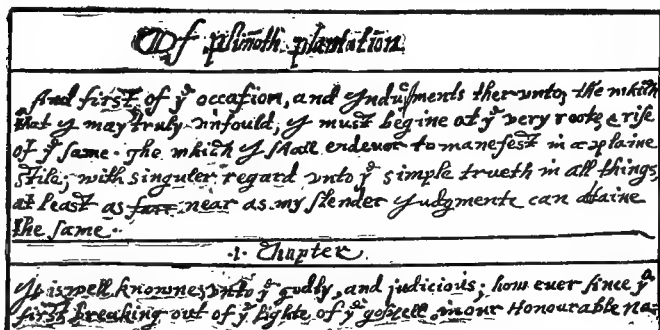 Of plimoth plantation
And first of yᵉ occasion, and Yndusments ther unto; the which
that Y may truly unfould, Y must begine at yᵉ very roote, & rise
of yᵉ same. The which Y shall endevor to manefest in a plaine
stile; with singuler regard unto yᵉ simple trueth in all things,
at least as farr near as my slender Yudgmente can attaine
the same.
.1. Chapter.
Yt is well knowne unto yᵉ godly, and judicious; how ever since yᵉ
first breaking out of yᵉ lighte of yᵉ gospell, in our Honourable Na-